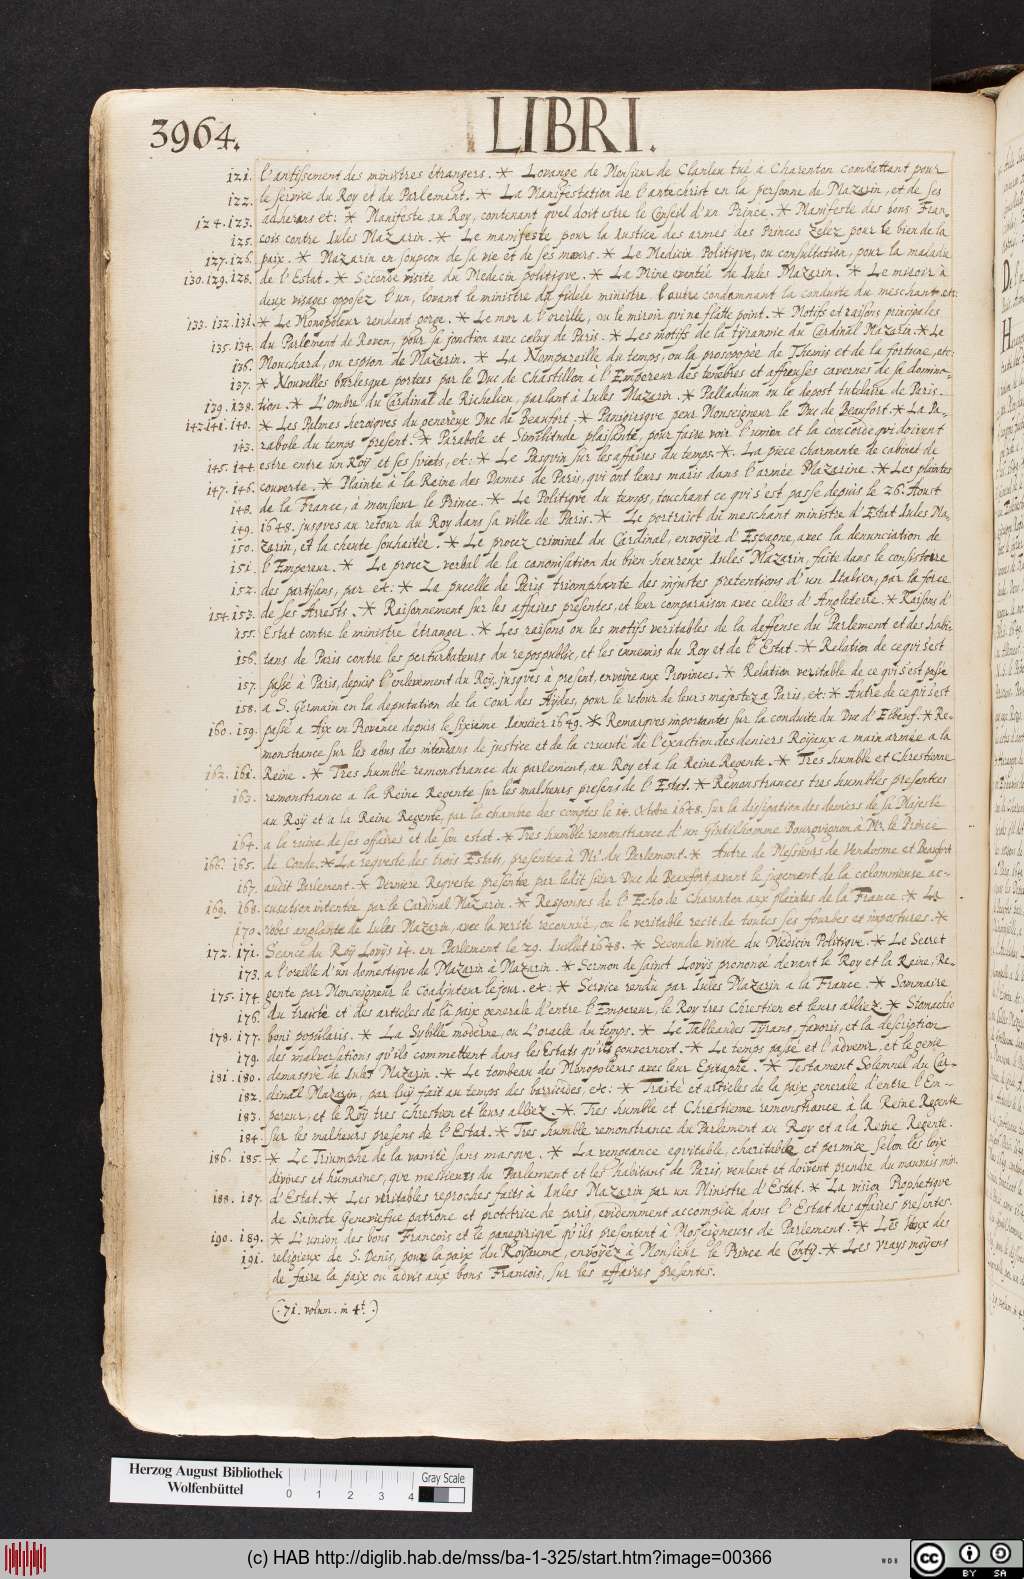 3964. LIBRI.
121. l'antissement des ministres étrangers. * Lovange de Monsieur de Clanleu tué à Charenton combattant pour
122. le service du Roy et du Parlement. * La Manifestation de l'antechrist en la personne de Mazarin, et de ses
124. 123. adherans et: * Manifeste au Roy, contenant quel doit estre le Conseil d'un Prince. * Manifeste des bons Fran-
125. cois contre Iules Mazarin. * Le manifeste pour la Iustice des armes des Princes Zelez pour le bien de la
127. 126. paix. * Mazarin en soupcon de sa vie et de ses mœurs. * Le Medicin Politique, ou consultation, pour la maladie
130. 129. 128. de l'Estat. * Seconde visite du Medecin politique. * La Mine eventeé de Iules Mazarin. * Le miroir à
deux visages opposez l'un, lovant le ministre du fidele ministre, l'autre condamnant la conduite du meschant. etc:
133. 132. 131. * Le Monopoleur rendant gorge. * Le mor a l'oreille, ou le miroir qui ne flatte point. * Motifs et raisons principales
135. 134. du Parlement de Roven, pour sa jonction avec celuy de Paris. * Les motifs de la tyrannie du Cardinal Mazarin. * Le
136. Mouschard, ou espion de Mazarin. * La Nompareille du temps, ou la prosopopeé de Themis et de la fortune, etc:
137. * Nouvelles burlesque portees par le Duc de Chastillon à l'Empereur des tenebres et affreuses cavernes de sa domina-
139. 138. tion. * L'ombre du Cardinal de Richelieu, parlant a Iules Mazarin. * Palladium ou le depost tutelaire de Paris.
142. 141. 140. * Les Palmes heroiques du genereux Duc de Beaufort. * Panigirique pour Monseigneur le Duc de Beaufort. * La Pa-
143. rabole du temps present. * Parabole et Similitude plaisante, pour faire voir l'union et la concorde qui doivent
145. 144. estre entre un Roÿ et ses sviets, et: * Le Pasquin sur les affaires du temps. * La piece charmante de cabinet de
147. 146. couverte. * Plainte à la Reine des Dames de Paris, qui ont leurs maris dans l'armeé Mazarine. * Les plaintes
148. de la France, a monsieur le Prince. * Le Politique du temps, touchant ce qui s'est passe depuis le 26. Aoust
149. 1648. jusques au retour du Roy dans sa ville de Paris. * Le portraict du meschant ministre d'Estat Iules Ma-
150. zarin, et la cheute souhaitée. * Le procez criminel du Cardinal, envoyée d'Espagne, avec la denunciation de
151. l'Empereur. * Le procez verbal de la canonisation du bien heureux Iules Mazarin, faite dans le consistoire
152. des partisans, par et: * La pucelle de Paris triomphante des injustes pretentions d'un Italien, par la force
154. 153. de ses Arrests. * Raisonnement sur les affaires presentes, et leur comparaison avec celles d'Angleterre. * Raisons d'
155. Estat contre le ministre étranger. * Les raisons ou les motifs veritables de la deffense du Parlement et des habi-
156. tans de Paris contre les perturbateurs du repospublic, et les ennemis du Roy et de l'Estat. * Relation de ce qui s'est
157. passé à Paris, depuis l'enlevement du Roy, jusques à present, envoyée aux Provinces. * Relation veritable de ce qui s'est passé
158. a S. Germain en la deputation de la Cour des Aydes, pour le retour de leurs majestez a Paris, et: * Autre de ce qui s'est
160. 159. passé a Aix en Provence depuis le sixieme Ianvier 1649. * Remarques importantes sur la conduite du Duc d'Elbeuf. * Re-
monstrance sur les abus des intendans de justice et de la cruauté de l'exaction des deniers Roijaux a main armée a la
162. 161. Reine. * Tres humble remonstrance du parlement, au Roy et a la Reine Regente. * Tres humble et Chrestienne
163. remonstrance a la Reine Regente sur les malheurs presens de l'Estat. * Remonstrances tres humbles presentees
au Roÿ et a la Reine Regente, par la chambre des comptes le 14 Octobre 1648. sur la dissipation des deniers de sa Majesté
164. a la ruine de ses affaires et de son estat. * Tres humble remonstrance d'un Gentilhomme Bourguignon à Mr. le Prince
166. 165. de Condé. * La requeste des trois Estats, presentée à Ms. du Parlement. * Autre de Messieurs de Vendosme et Beaufort
167. audit Parlement. * Derniere Requeste presentée par ledit sieur Duc de Beaufort, avant le jugement de la calomnieuse ac-
169. 168. cusation intentée par le Cardinal Mazarin. * Responses de l'Echo de Charenton aux plaintes de la France. * Le
170. robes anglante de Iules Mazarin, avec la verité reconnuë, ou le veritable recit de toutes ses fourbes et impostures. *
172. 171. Seance du Roÿ Loÿis 14. en Parlement le 29. Iuillet 1648. * Seconde visite du Medicin Politique. * Le Secret
173. a l'oreille d'un domestique de Mazarin à Mazarin. * Sermon de sainct Lovÿs prononcé devant le Roy et la Reine, Re-
175. 174. gente par Monseigneur le Coadjuteur lejour. et: * Service rendu par Iules Mazarin a la France. * Sommaire
176. du traicté et des articles de la paix generale d'entre l'Empereur, le Roy tres Chrestien et leurs alliez. * Stomachio
178. 177. boni popularis. * La Sybille moderne, ou L'oracle du temps. * Le Tableau des Tyrans, favoris, et la description
179. des malversations qu'ils commettent dans les Estats qu'ils gouvernent. * Le temps passé et l'advenir, et le genie
181. 180. demasque de Iules Mazarin. * Le tombeau des Monopoleurs avec leur Epitaphe. * Testament Solemnel du Car-
182. dinal Mazarin, par luy fait au temps des barricades, etc: * Traité et articles de la paix generale d'entre l'Em-
183. pereur, et le Roÿ tres chrestien et leurs alliez. * Tres humble et Chrestienne remonstrance à la Reine Regente
184. sur les malheurs presens de l'Estat. * Tres humble remonstrance du Parlement au Roy et a la Reine Regente.
186. 185. * Le Triumphe de la vanité sans masque. * La vengeance equitable, charitable, et permise selon les loix
divines et humaines, que messieurs du Parlement et les habitans de Paris, veulent et doivent prendre du mauvais min.
188. 187. d'Estat. * Les veritables reproches faits à Iules Mazarin par un Ministre d'Estat. * La vision Prophetique
de Saincte Genevieve patrone et protectrice de paris, evidemment accomplie dans l'Estat des affaires presentes.
190. 189. * L'union des bons Francois et le panegirique qu'ils presentent à Mosseigneurs de Parlement. * Les Vœux des
191. religieux de S. Denis, pour la paix du Royaume, envoyez à Monsieur le Prince de Conty. * Les vrays moyens
de faire la paix ou advis aux bons Francois, sur les affaires presentes.
(. 71. volum. in 4t. .)
Herzog August Bibliothek
Wolfenbüttel
0 1 2 3 4
Gray Scale
(c) HAB http://diglib.hab.de/mss/ba-1-325/start.htm?image=00366
WDB
cc BY SA